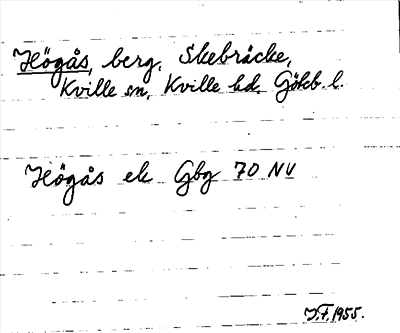 Högås, berg, Skebråcke,
Kville sn, Kville hd. Gökb. l.
Högås ek Gbg 70 NV
J.F. 1955.